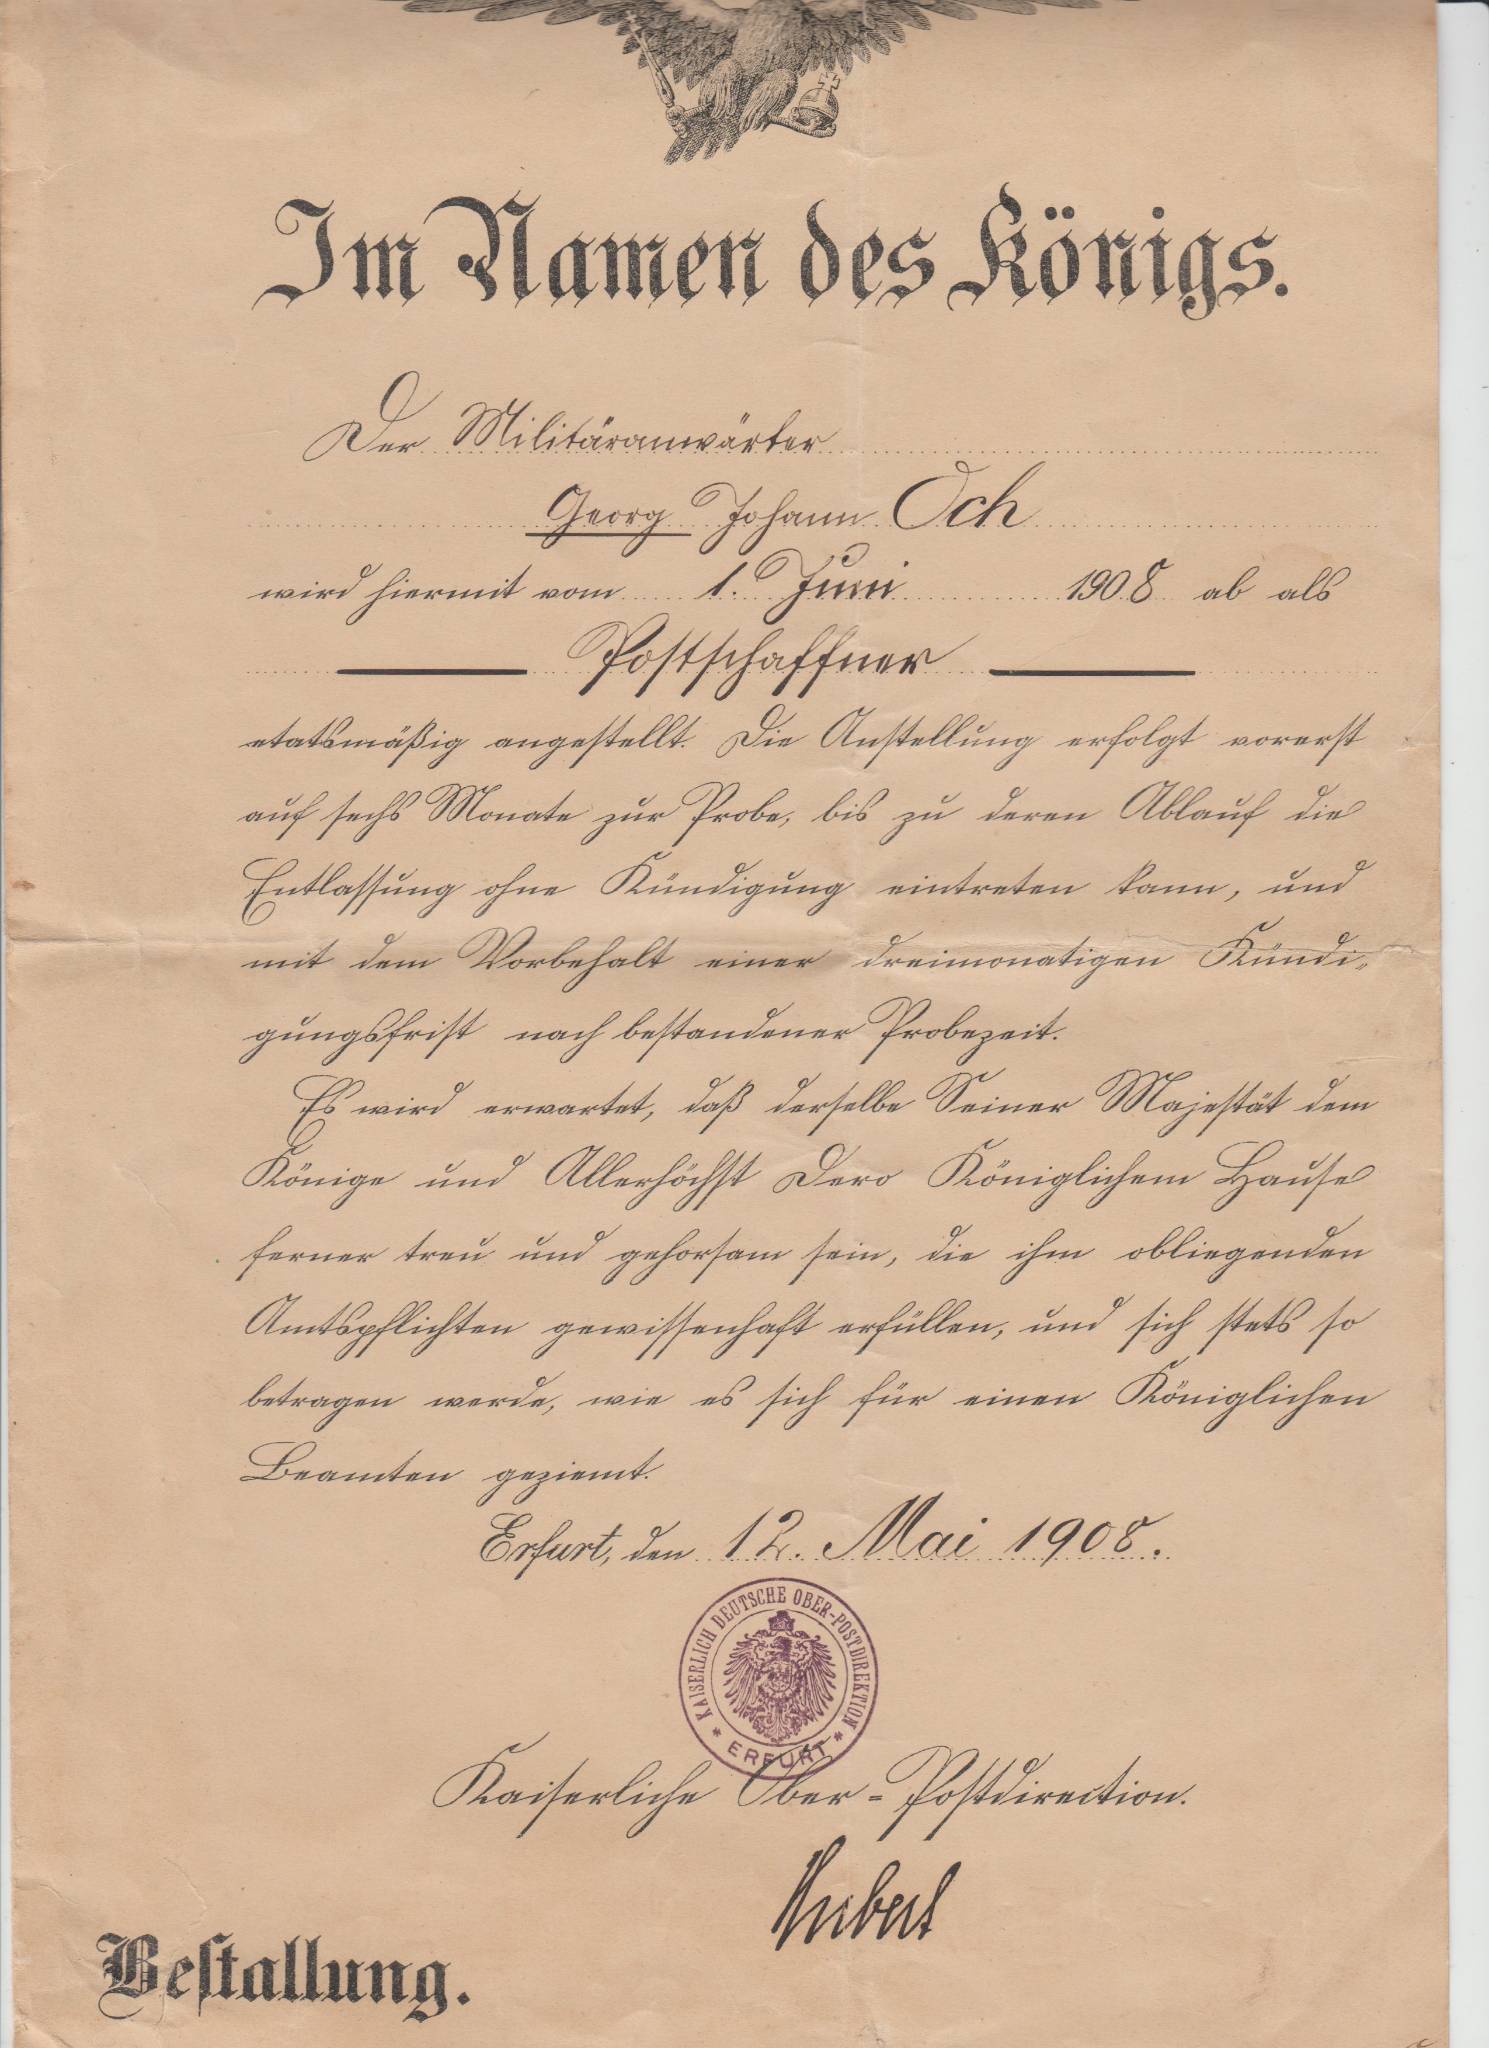 Im Namen des Königs.
Der Militäranwärter
Georg Johann Och
wird hiermit vom 1. Juni 1908 ab als
Postschaffner
etatsmäßig angestellt. Die Anstellung erfolgt vorerst
auf sechs Monate zur Probe, bis zu deren Ablauf die
Entlassung ohne Kündigung eintreten kann, und
mit dem Vorbehalt einer dreimonatigen Kündi-
gungsfrist nach bestandener Probezeit.
Es wird erwartet, daß derselbe Seiner Majestät dem
Könige und Allerhöchst Dero Königlichem Hause
ferner treu und gehorsam sein, die ihm obliegenden
Amtspflichten gewissenhaft erfüllen, und sich stets so
betragen werde, wie es sich für einen Königlichen
Beamten geziemt.
Erfurt, den 12. Mai 1908.
KAISERLICH DEUTSCHE OBER-POSTDIREKTION
* ERFURT *
Kaiserliche Ober-Postdirection.
Bestallung.